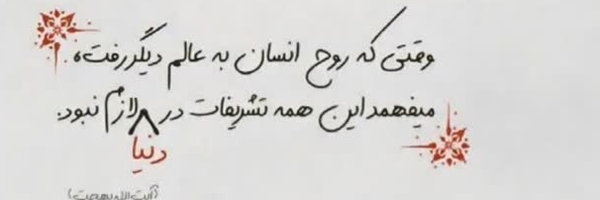 وقتی که روح انسان به عالم دیگر رفت،
میفهمد این همه تشریفات در دنیا لازم نبود.
(آیت الله بهجت)